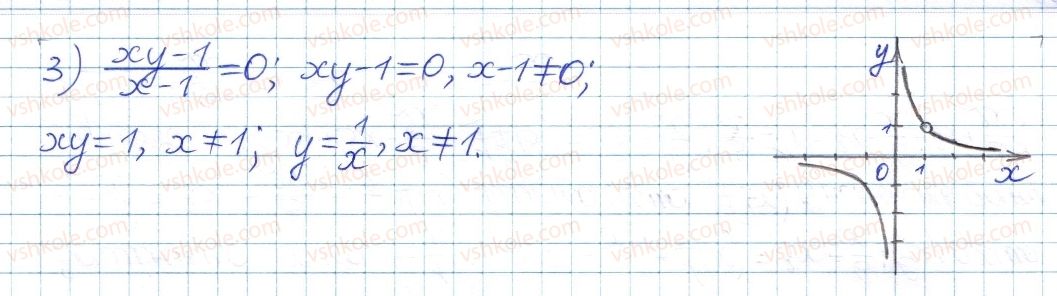 3) (xy-1)/(x-1) =0; xy-1=0, x-1≠0;
xy=1, x≠1; y=1/x, x≠1.
y
1
0 1 x
vshkole.com